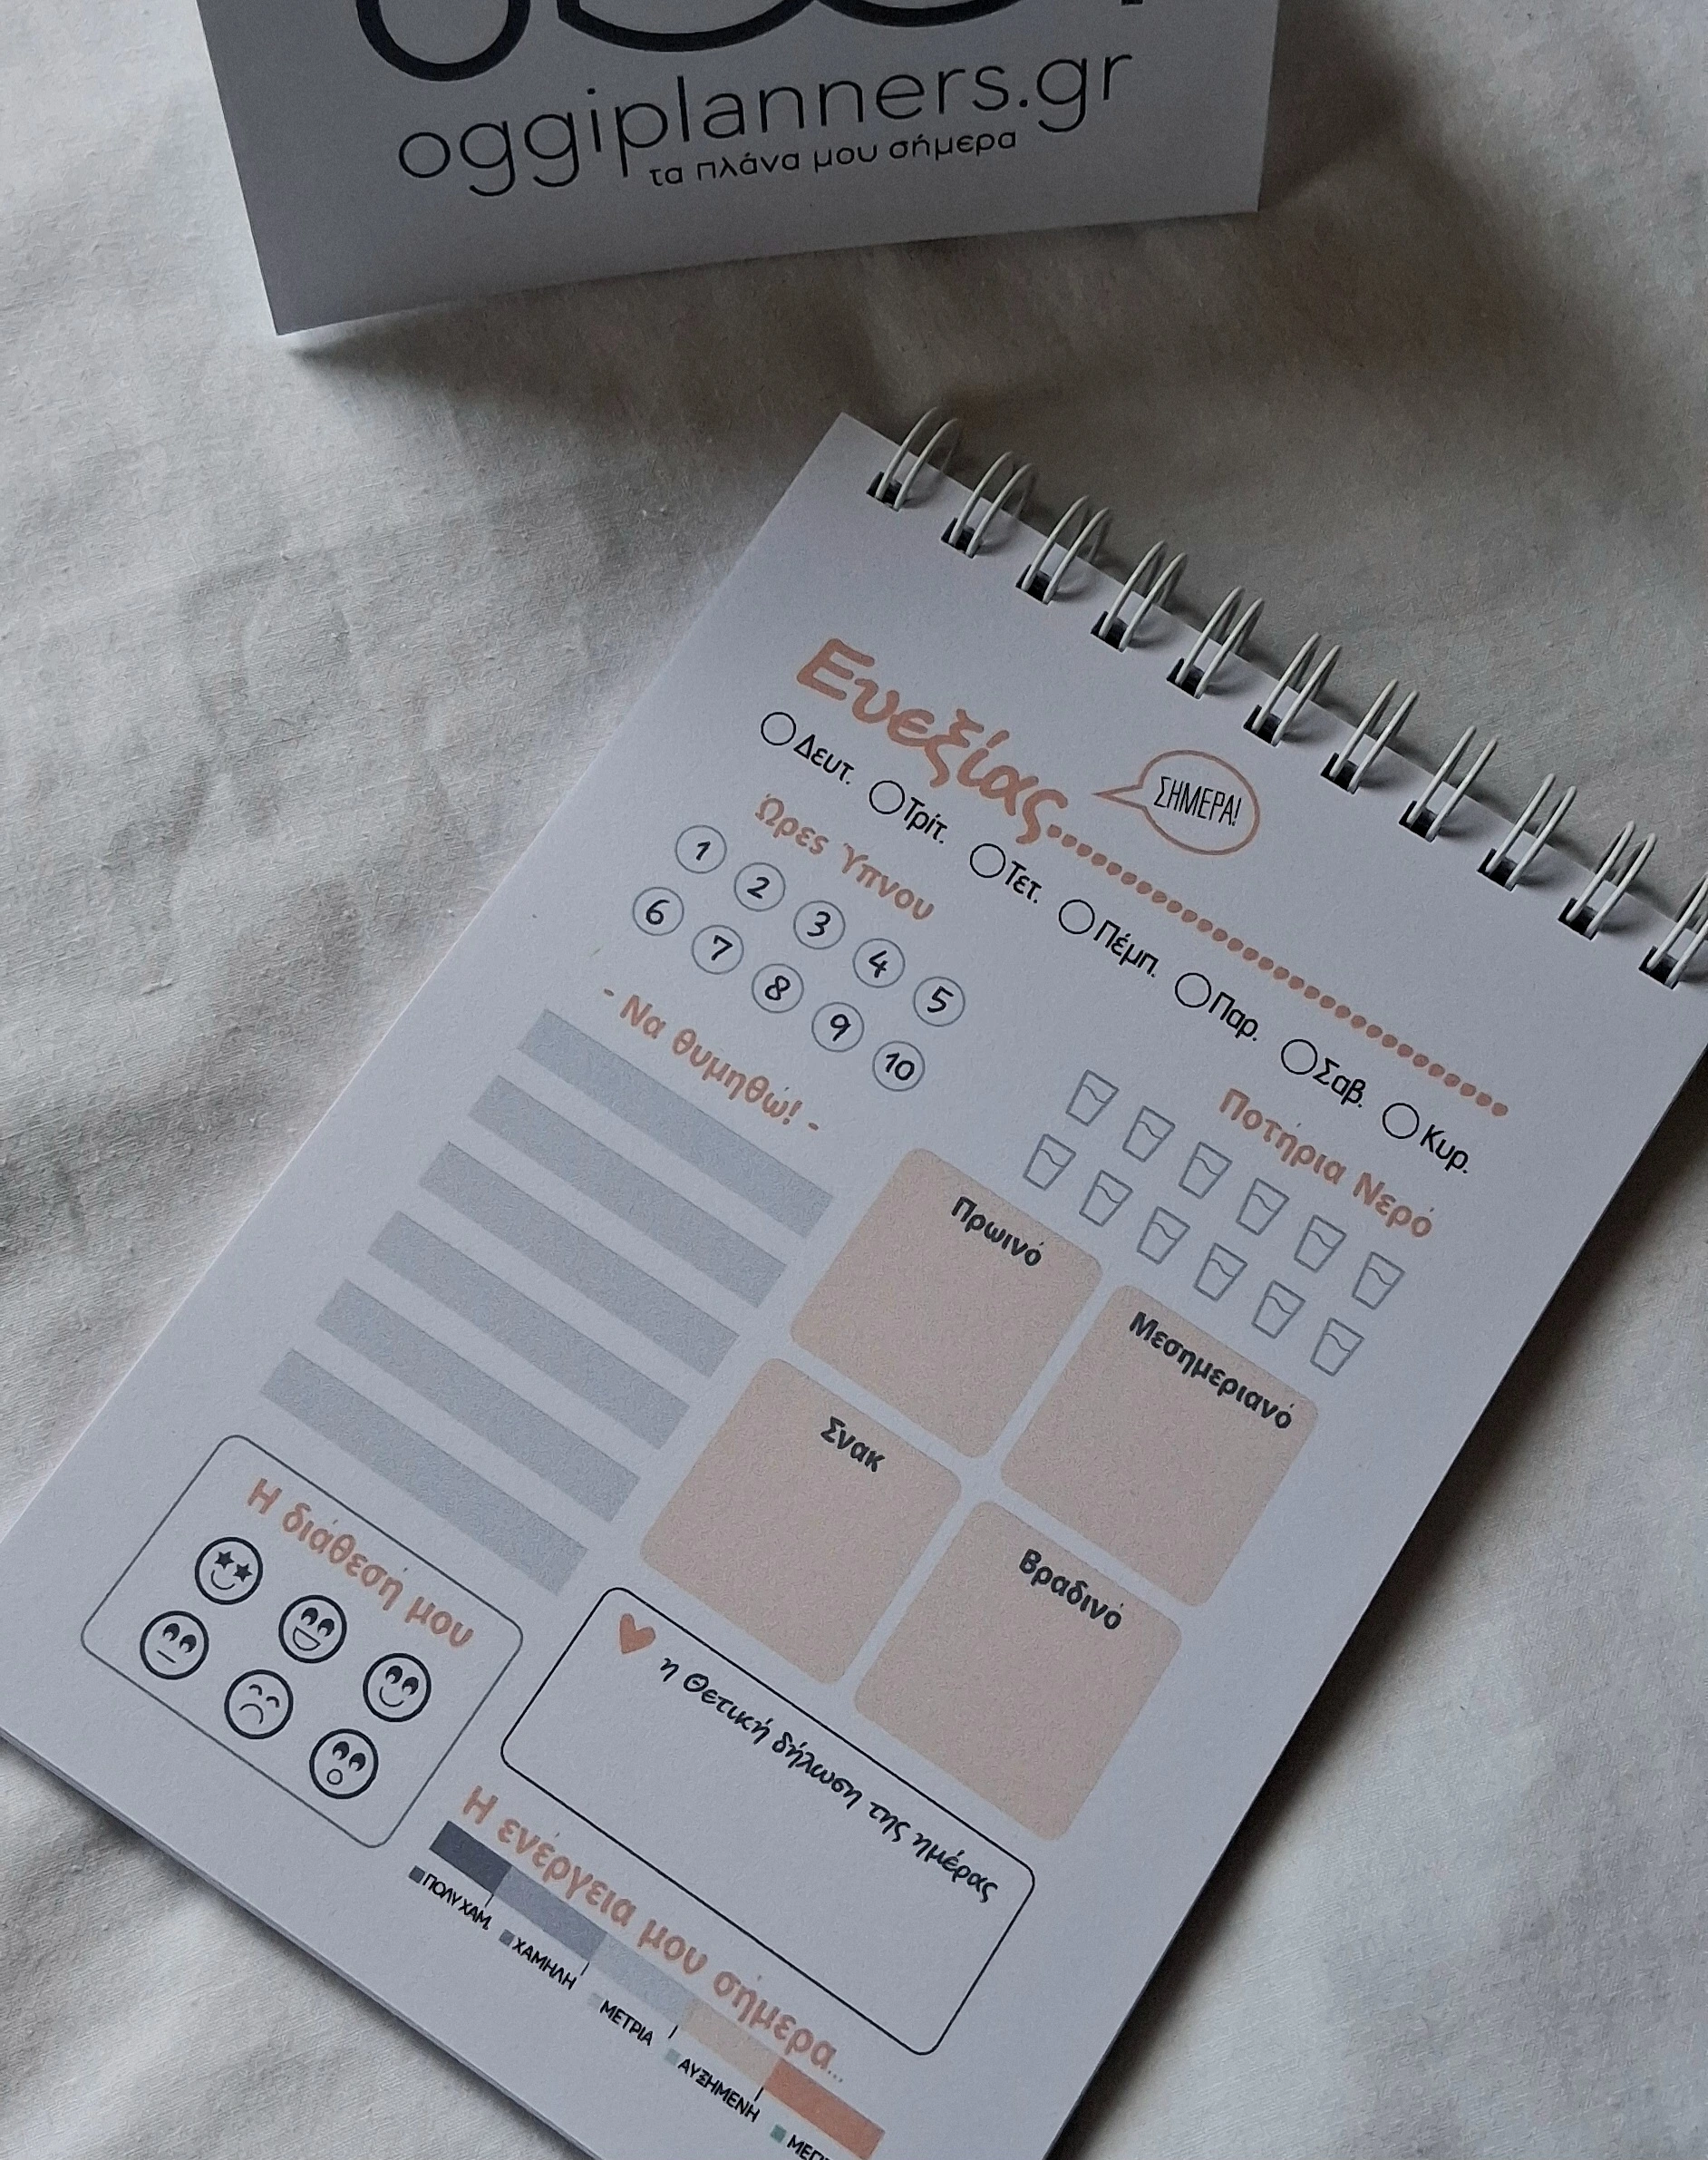 oggiplanners.gr
τα πλάνα μου σήμερα
Ευεξίας
ΣΗΜΕΡΑ!
Δευτ. Τρίτ. Τετ. Πέμπ. Παρ. Σαβ. Κυρ.
Ώρες Ύπνου
1 2 3 4 5
6 7 8 9 10
Ποτήρια Νερό
- Να θυμηθώ! -
Πρωινό
Μεσημεριανό
Σνακ
Βραδινό
Η διάθεσή μου
η Θετική δήλωση της ημέρας
Η ενέργεια μου σήμερα...
ΠΟΛΥ ΧΑΜ.
ΧΑΜΗΛΗ
ΜΕΤΡΙΑ
ΑΥΞΗΜΕΝΗ